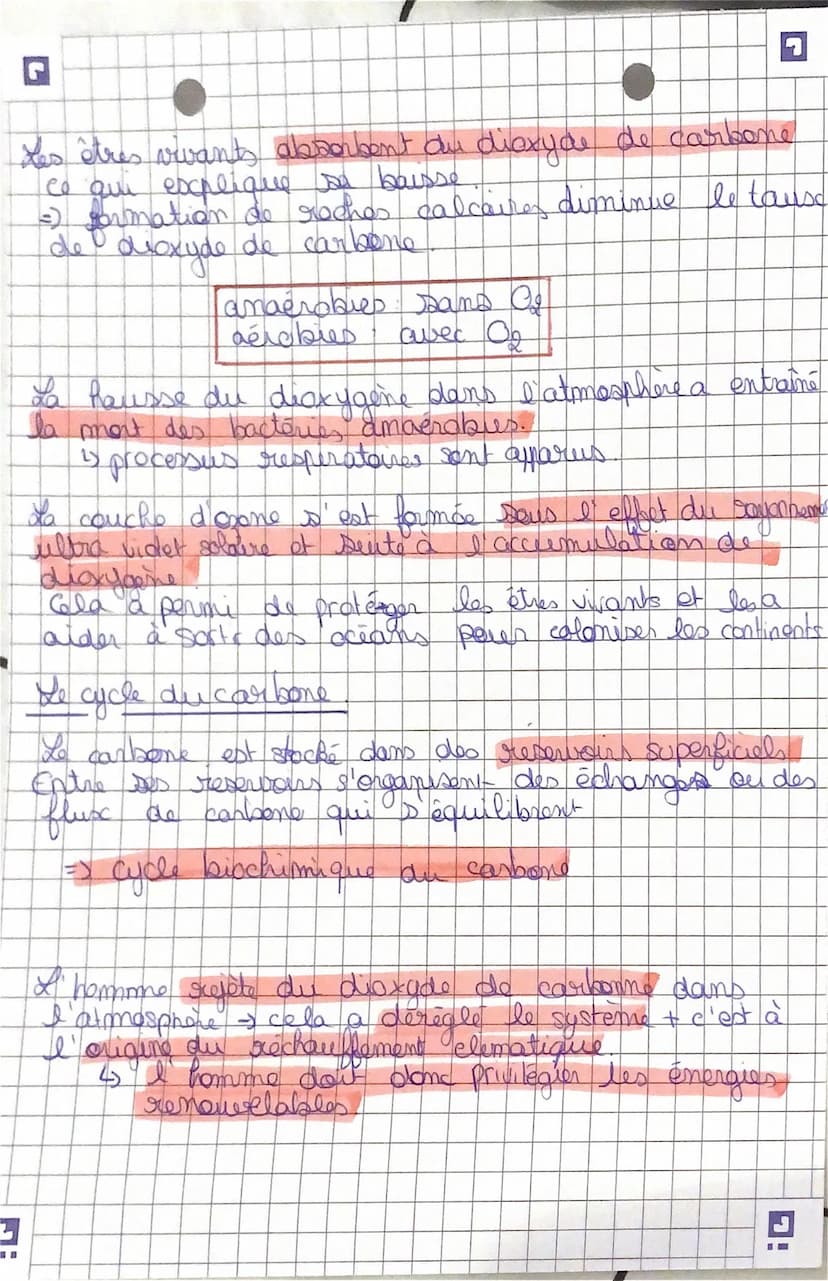 Les êtres vivants absorbent du dioxyde de carbone
ce qui explique sa baisse.
=> formation de roches calcaires diminue le taux
de dioxyde de carbone.
anaérobies : sans O2
aérobies : avec O2
La hausse du dioxygène dans l'atmosphère a entraîné
la mort des bactéries anaérobies.
↳ processus respiratoires sont apparus.
La couche d'ozone s'est formée sous l'effet du rayonnement
ultra violet solaire et suite à l'accumulation de
dioxygène
Cela a permi de protéger les êtres vivants et les a
aider à sortir des océans pour coloniser les continents
Le cycle du carbone
Le carbone est stocké dans des réservoirs superficiels
Entre ses reservoirs s'organisent des échanges ou des
flux de carbone qui s'équilibrent
=> cycle biochimique du carbone
L'homme rejète du dioxyde de carbonne dans
l'atmosphère → cela a dérèglé le système + c'est à
l'origine du réchauffement climatique.
↳ l'homme doit donc privilégier les énergies
renouvelables